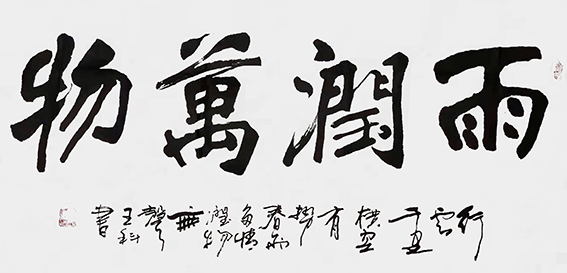 雨潤萬物
行雲橫空有春雨多情潤物無聲王科書